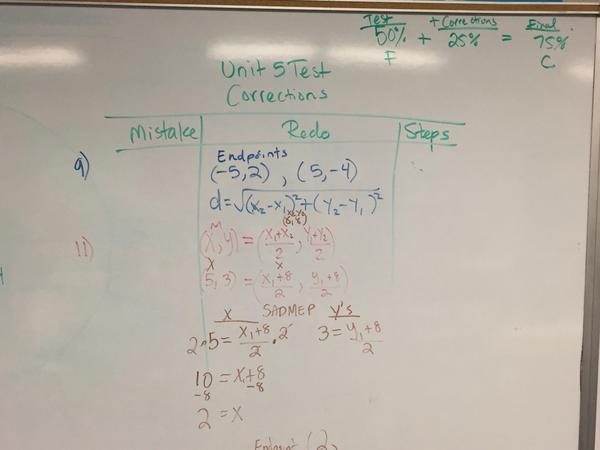 Test + Corrections Final
50% + 25% = 75%
F C
Unit 5 Test
Corrections
Mistake Redo Steps
9) Endpoints
(-5,2) , (5,-4)
d=√(x₂-x₁)²+(y₂-y₁)²
11) (x,y) = (x₁+x₂/2, y₁+y₂/2)
(5,3) = (x₁+8/2, y₁+8/2)
x SADMEP y's
2·5 = x₁+8/2 ·2 3 = y₁+8/2
10 = x₁+8
-8 -8
2 = x
Endpoint (2,